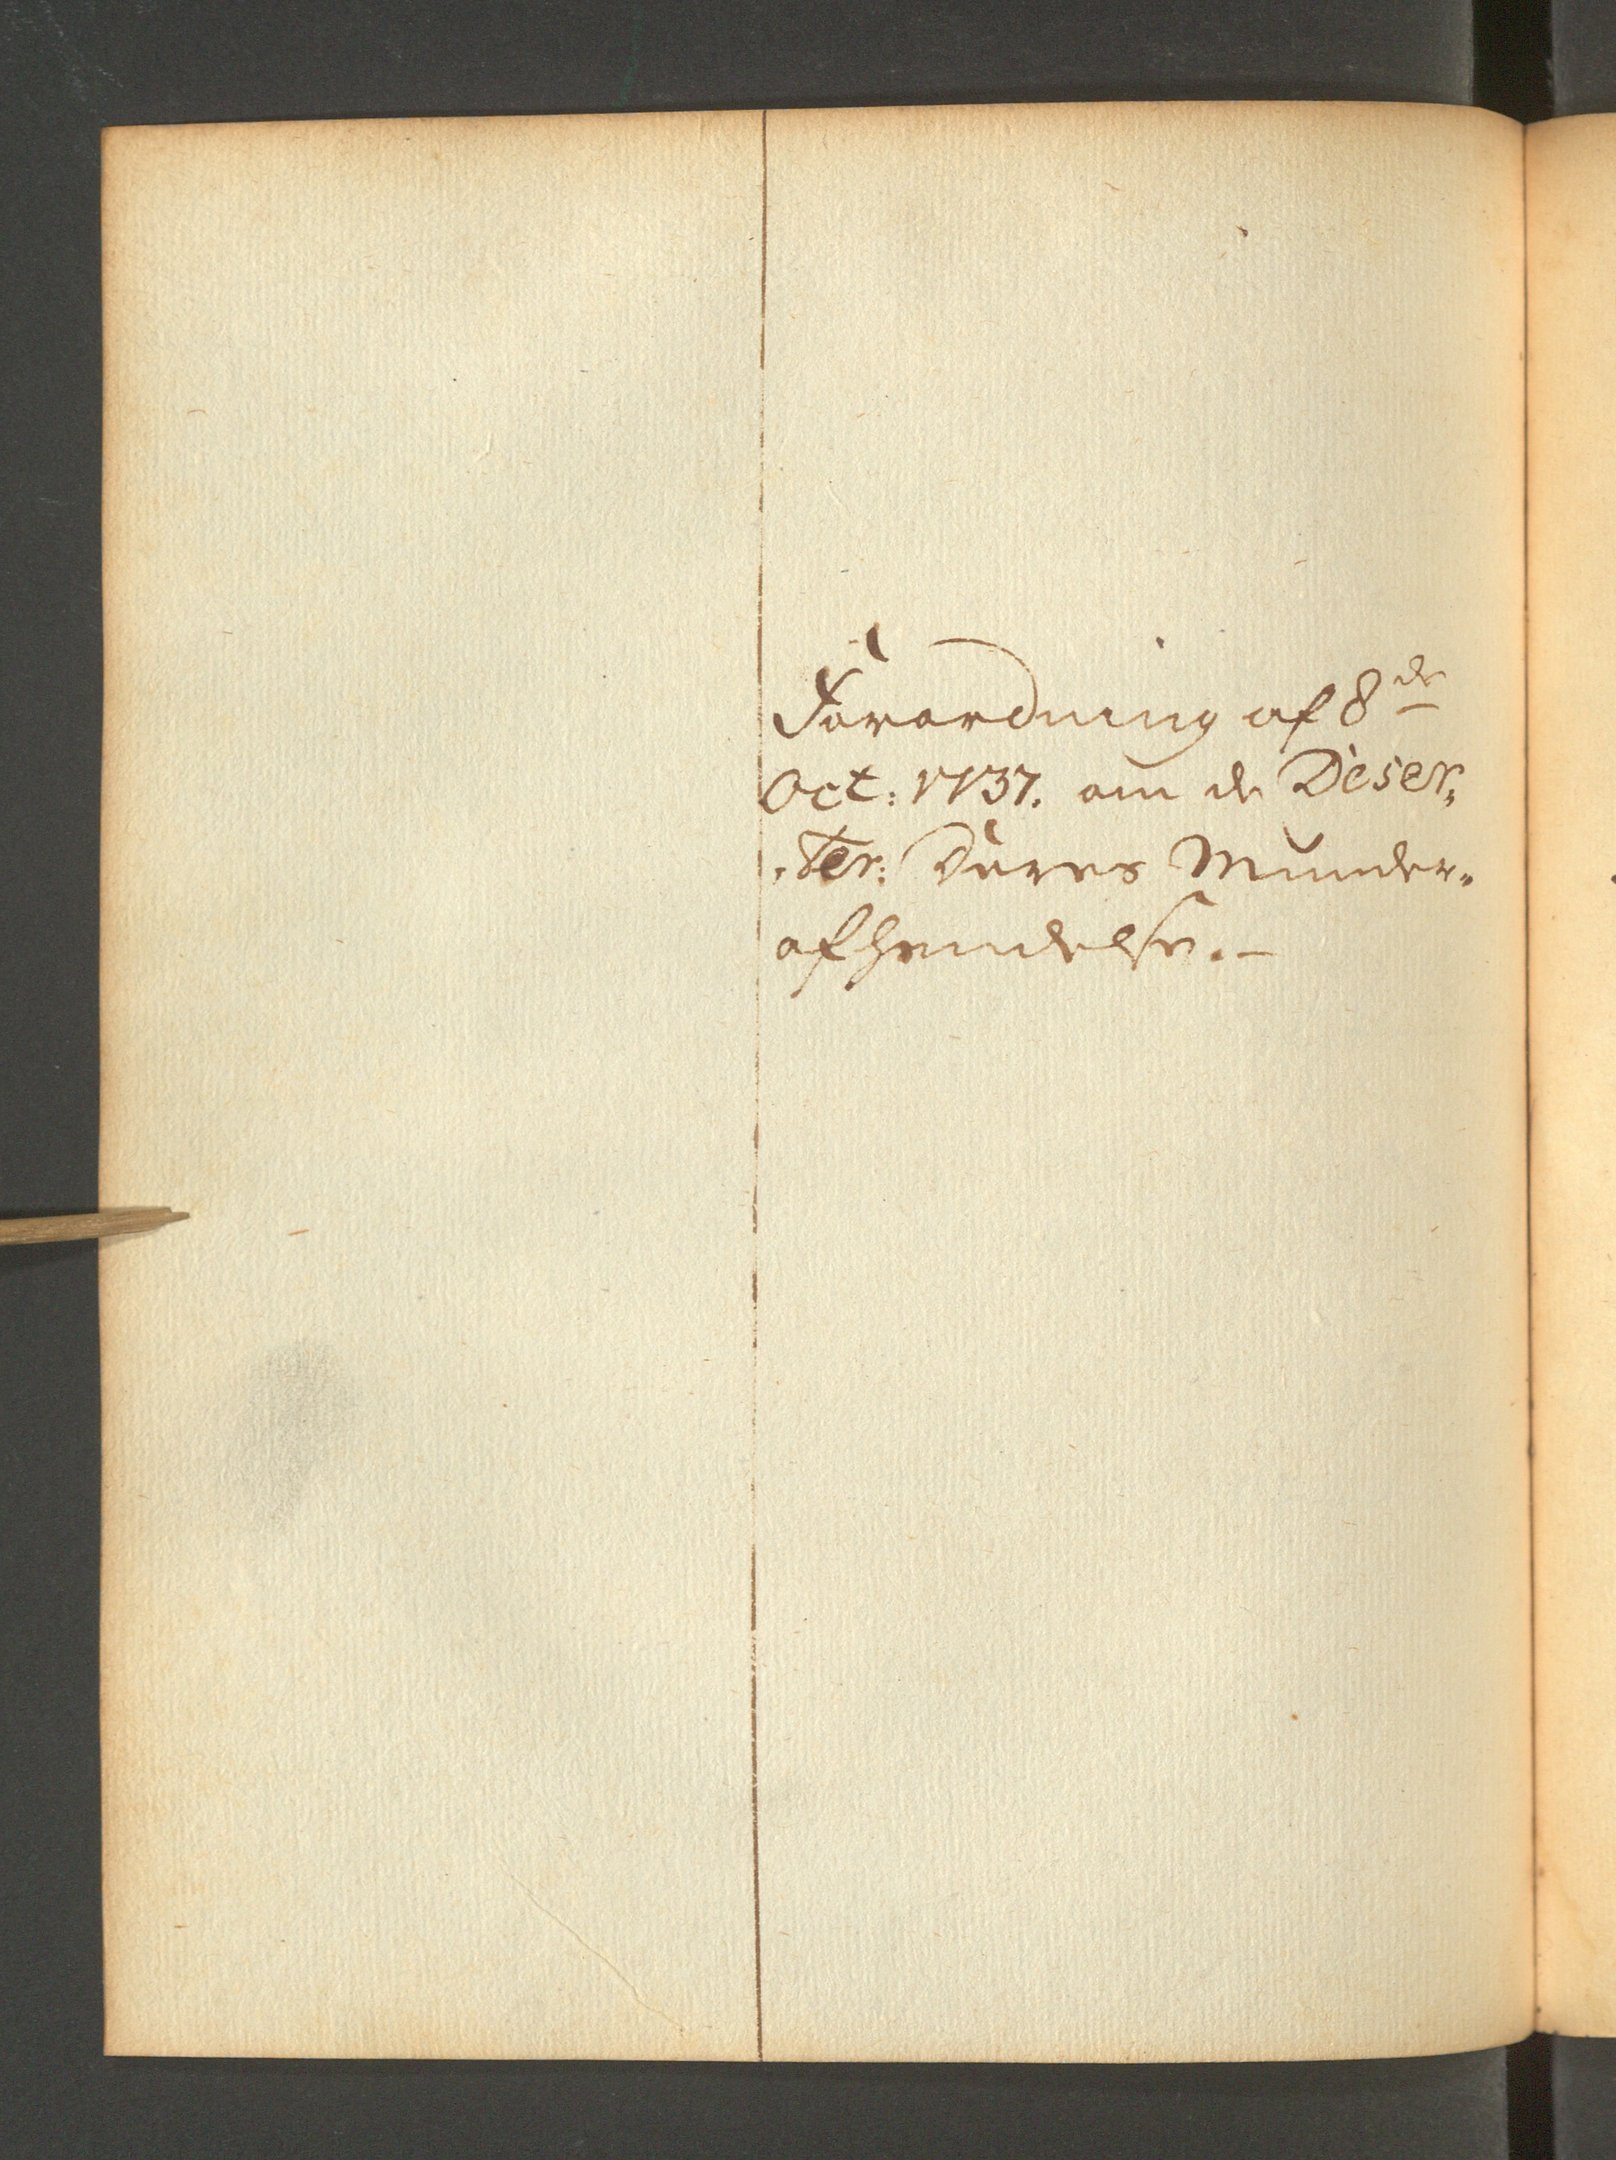 Forordning af 8de
Oct: 1737. om de Deser„
„ter: Deres Munder„
afhendelse. –